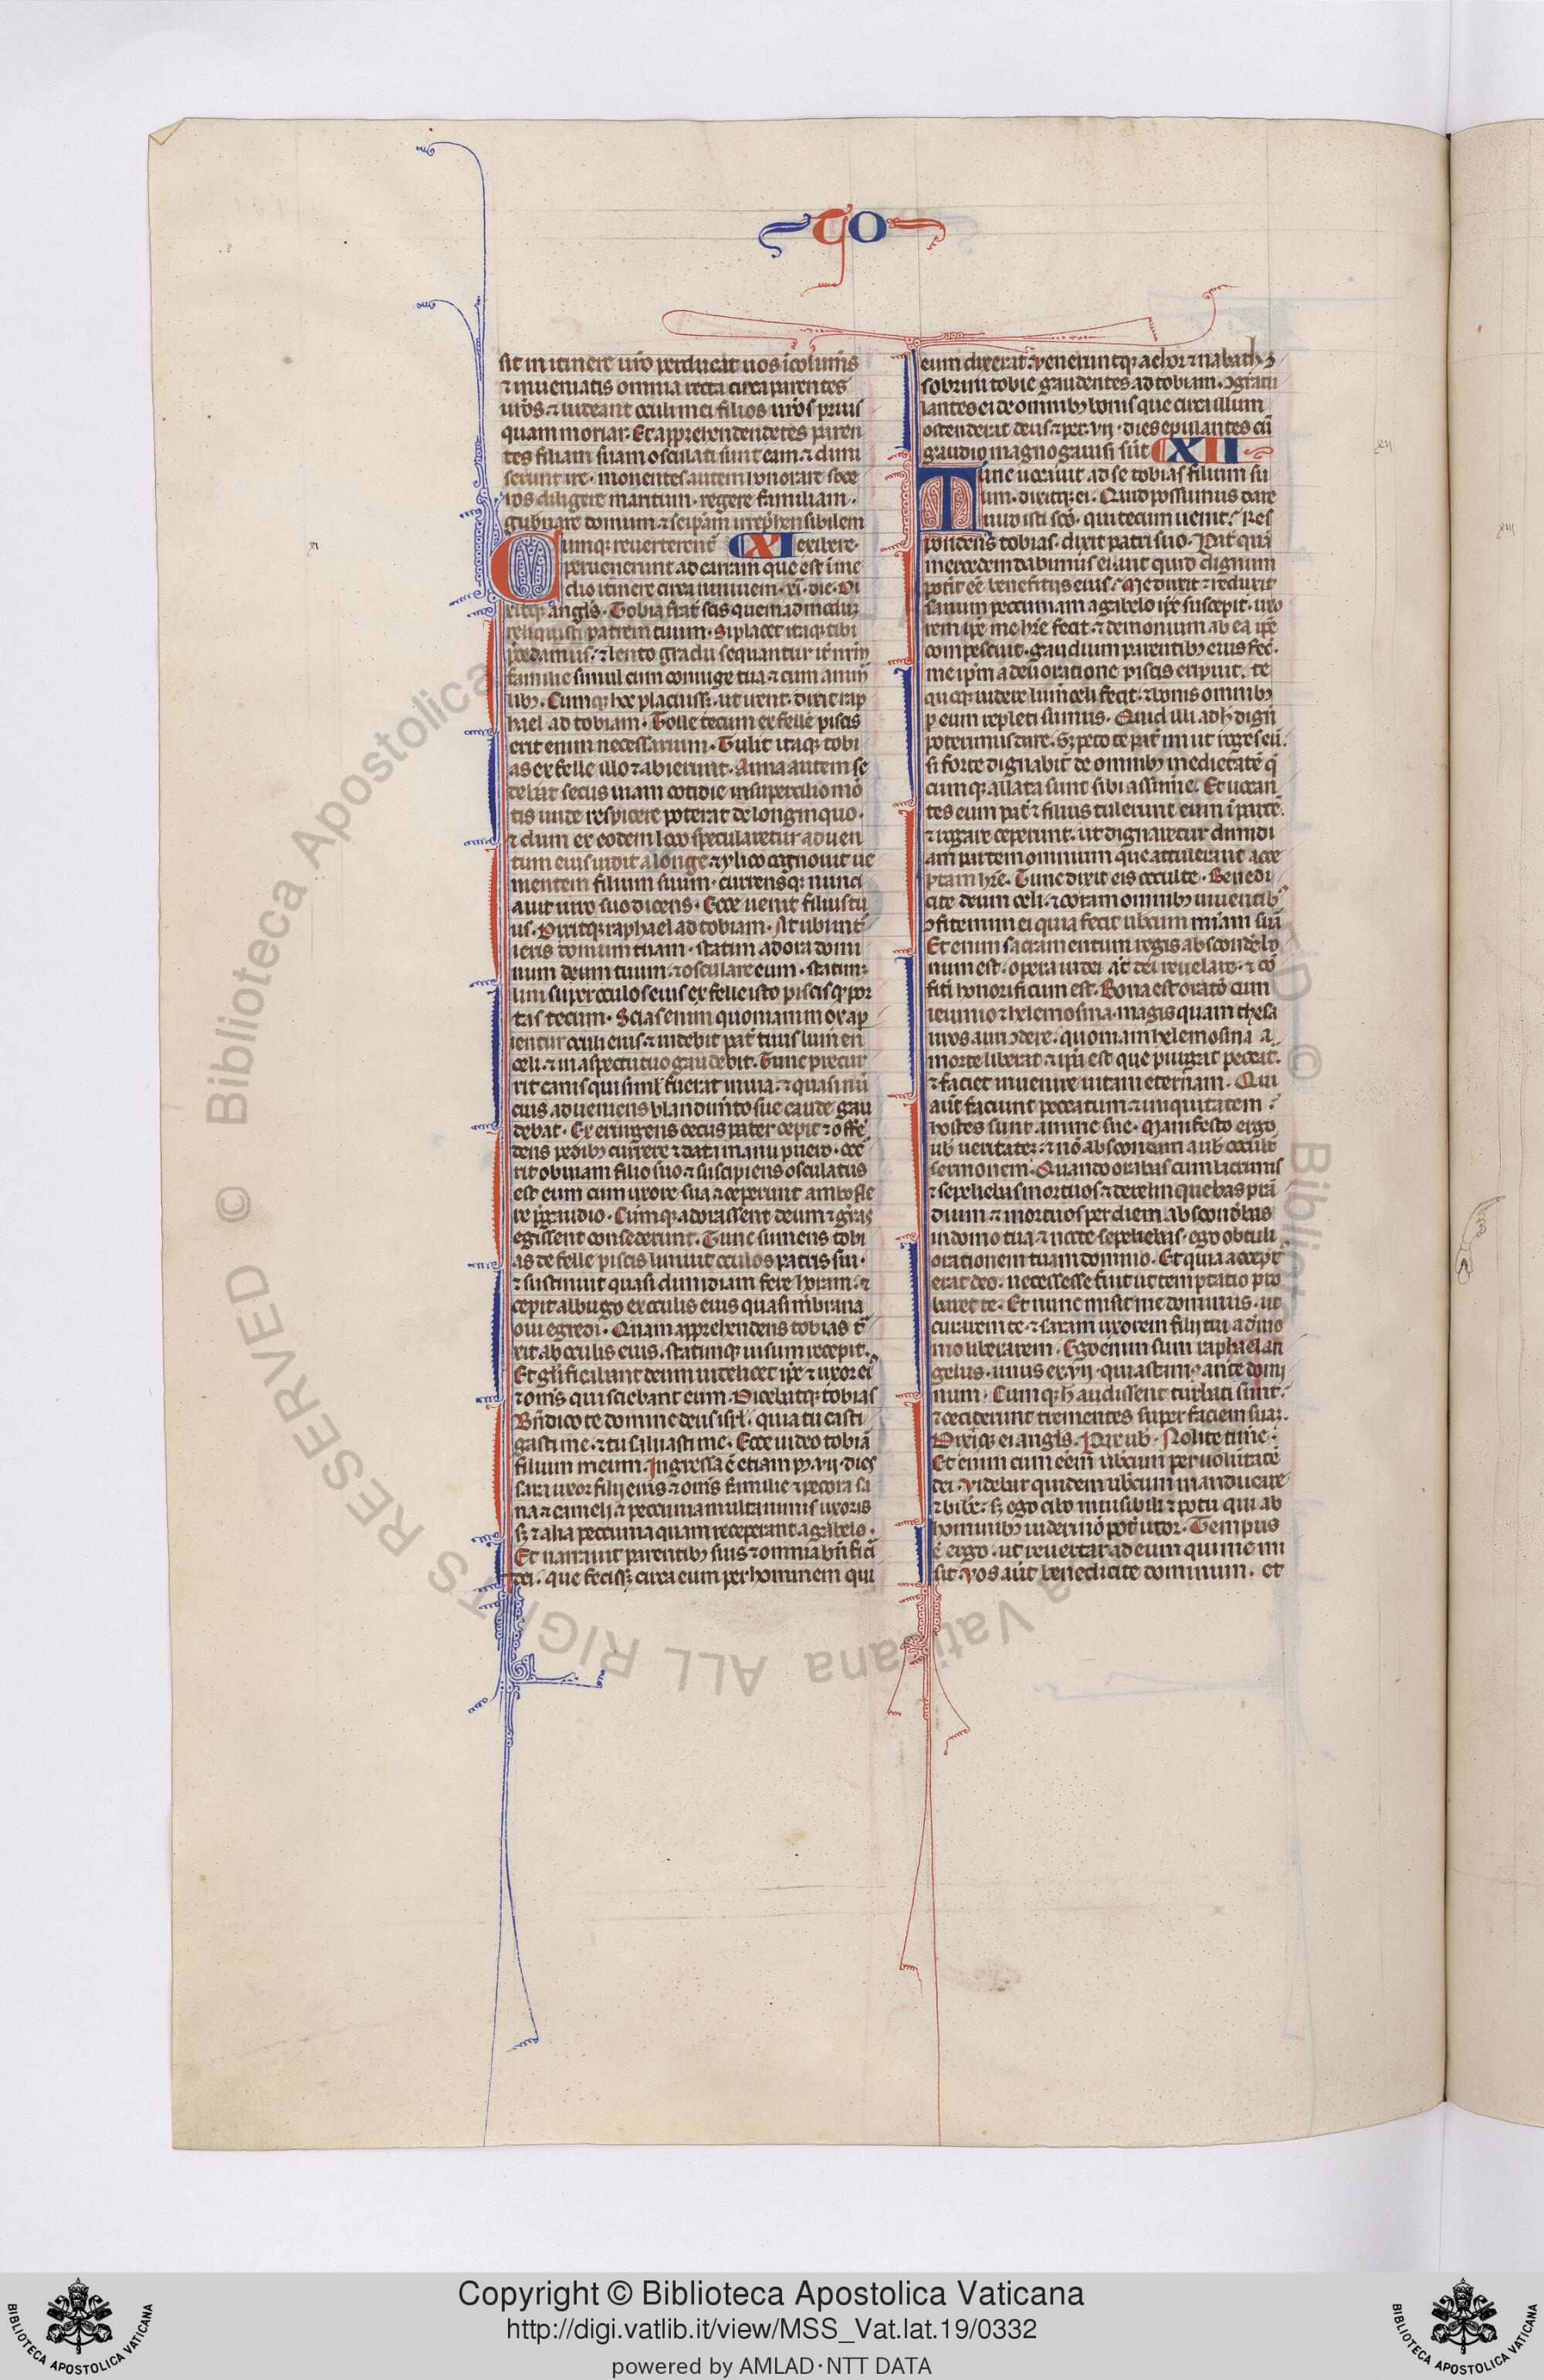 TO
sit in itinere uro perducat uos icolumis
⁊ inueniatis omnia recta circa parentes
uros. ⁊ uideant oculi mei filios uros prius
quam moriar. Et apprehendentes paren
tes filiam suam osculati sunt eam. ⁊ dimi
serunt ire. monentes autem honorare soce
ros diligere maritum. regere familiam.
gubnare domum. ⁊ seipam irrephensibilem
Cumque reuerterent XI exibere.
peruenerunt ad carram que est i me
dio itinere circa niniuem. xi. die. Di
xitque angls. Tobia frat scis quemadmodum
reliquisti patrem tuum. Si placet itaque tibi
pcedamus. ⁊ lento gradu sequantur iter nrm
familie simul cum coniuge tua ⁊ cum anim
libus. Cumque hoc placuisset. ut irent. dixit rap
hael ad tobiam. Tolle tecum ex felle piscis
erit enim necessarium. Tulit itaque tobi
as ex felle illo ⁊ abierunt. Anna autem se
debat secus uiam cotidie in supercilio mon
tis unde respicere poterat de longinquo.
⁊ dum ex eodem loco specularetur aduen
tum eius uidit a longe. ⁊ ylico cognouit ue
nientem filium suum. currensque nunci
auit uiro suo dicens. Ecce uenit filius tu
us. Dixitque raphael ad tobiam. At ubi int
ieris domum tuam. statim adora domi
num deum tuum. ⁊ osculare eum. statimque
lini super oculos eius ex felle isto piscis quem por
tas tecum. Scias enim quoniam mox ap
ientur oculi eius. ⁊ uidebit pat tuus lumen
celi. ⁊ in aspectu tuo gaudebit. Tunc precur
rit canis qui siml fuerat in uia. ⁊ quasi nun
cius adueniens blandimto sue caude gau
debat. Et exurgens cecus pater cepit ⁊ offen
dens pedibus currere ⁊ data manu puero. occur
rit obuiam filio suo. ⁊ suscipiens osculatus
est eum cum uxore sua ⁊ ceperunt ambo fle
re p gaudio. Cumque adorassent deum ⁊ gras
egissent consederunt. Tunc sumens tobi
as de felle piscis liniuit oculos patris sui.
⁊ sustinuit quasi dimidiam fere horam. ⁊
cepit albugo ex oculis eius quasi mbrana
oui egredi. Quam apprehendens tobias t
xit ab oculis eius. statimque uisum recepit.
Et glificabant deum uidelicet ipse ⁊ uxor ei
⁊ oms qui sciebant eum. Dicebatque tobias
Bndico te domine deus isrl. quia tu casti
gasti me. ⁊ tu saluasti me. Ecce uideo tobiam
filium meum. Ingressa e etiam p. vii. dies
sara uxor filii eius ⁊ oms familie ⁊ pecora sa
na ⁊ cameli ⁊ peccunia multa nimis uxoris
sz ⁊ alia peccunia quam receperant a gabelo.
Et narrauit parentibus suis ⁊ omnia bnfici
dei. que fecisset circa eum per hominem qui
eum duxerat. Venerunt que achor ⁊ nabath
sobrini tobie gaudentes ad tobiam. ɔgratu
lantes ei de omnibus bonis que circa illum
ostenderat deus. ⁊ per. vii. dies epulantes cum
gaudio magno gauisi sunt XII
Tunc uocauit ad se tobias filium su
um. dixitque ei. Quid possumus dare
uiro isti sco. qui tecum uenit. Res
pondens tobias. dixit patri suo. Pat qua
mercedem dabimus ei. aut quid dignum
potit ee beneficiis eius. Me duxit ⁊ reduxit
sanum peccuniam a gabelo ipe suscepit. uxo
rem ipe me hre fecit. ⁊ demonium ab ea ipe
compescuit. gaudium parentibus eius fec.
me ipm a deuoratione piscis eripuit. te
quoque uidere lum celi fecit. ⁊ bonis omnibus
p eum repleti sumus. Quid illi ad h dign
poterimus dare. Sz peto te pat mi ut roges eum.
si forte dignabit de omnibus medietate q
cumque allata sunt sibi assume. Et uocan
tes eum pat ⁊ filius tulerunt eum i parte.
⁊ rogare ceperunt. ut dignaretur dimidi
am partem omnium que attulerant acce
ptam hre. Tunc dixit eis occulte. Benedi
cite deum celi. ⁊ coram omnibus uiuentibus
ɔfitemini ei quia fecit uobiscum miam suam
Et enim sacramentum regis abscondere bo
num est. opera uidei at dei reuelare. ⁊ con
fiti honorificum est. Bona est orato cum
ieiunio ⁊ helemosina. magis quam thesa
uros auri ɔdere. quoniam helemosina a
morte liberat. ⁊ ipa est que purgat peccat.
⁊ faciet inuenire uitam eternam. Qui
aut faciunt peccatum ⁊ iniquitatem.
hostes sunt anime sue. Manifesto ergo
ub ueritatem. ⁊ no abscondam a ub occult
sermonem. Quando orabas cum lacrimis
⁊ sepeliebas mortuos ⁊ derelinquebas pran
dium. ⁊ mortuos per diem abscondebas
in domo tua. ⁊ nocte sepeliebas. ego obtuli
orationem tuam domino. Et quia accept
erat deo. necessesse fuit ut temptatio pro
baret te. Et nunc misit me dominus. ut
curarem te. ⁊ saram uxorem filij tui a dmo
nio liberarem. Ego enim sum raphael an
gelus. unus ex. vii. qui astamus ante domi
num. Cumque h audissent turbati sunt.
⁊ ceciderunt trementes super faciem suam.
Dixitque ei angls. Pax ub. Nolite time.
Et enim cum eem uobiscum per uoluntatem
dei. Videbar quidem uobiscum manducare
⁊ bibe. sz ego cibo inuisibili ⁊ potu qui ab
hominibus uideri no pot utor. Tempus
e ergo. ut reuertar ad eum qui me mi
sit. Vos aut benedicite dominum. et
xi
xii
Copyright © Biblioteca Apostolica Vaticana
http://digi.vatlib.it/view/MSS_Vat.lat.19/0332
powered by AMLAD·NTT DATA
BIBLIOTECA APOSTOLICA VATICANA
BIBLIOTECA APOSTOLICA VATICANA
© Biblioteca Apostolica Vaticana ALL RIGHTS RESERVED